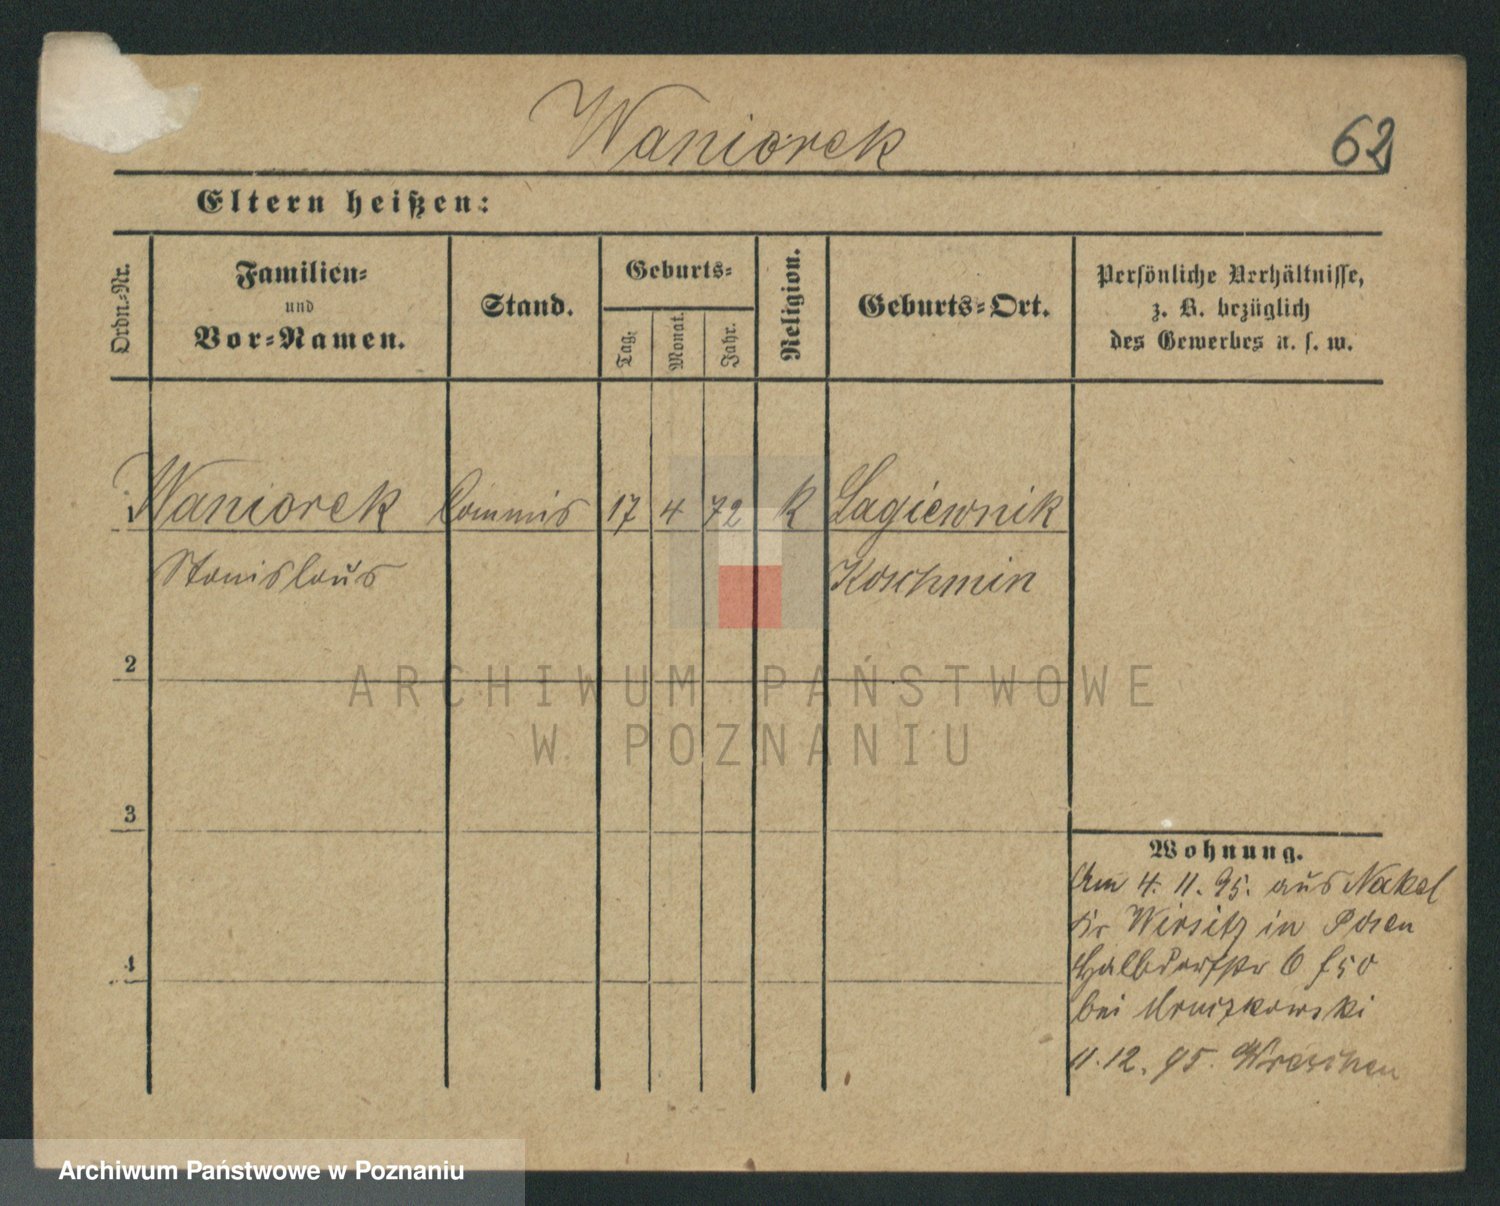 Waniorek
62
Eltern heißen:
Ordn.-Nr.
Familien-
und
Vor-Namen.
Stand.
Geburts-
Tag.
Monat.
Jahr.
Religion.
Geburts-Ort.
Persönliche Verhältnisse,
z. B. bezüglich
des Gewerbes u. s. w.
1 Waniorek Commis 17 4 72 K Lagiewnik
Stanislaus Koschmin
2
ARCHIWUM PAŃSTWOWE
W POZNANIU
3
Wohnung.
Am 4. 11. 95. aus Nakel
Kr Wirsitz in Posen
4
Halbdorfstr 6
bei
11.12. 95. Wreschen
Archiwum Państwowe w Poznaniu